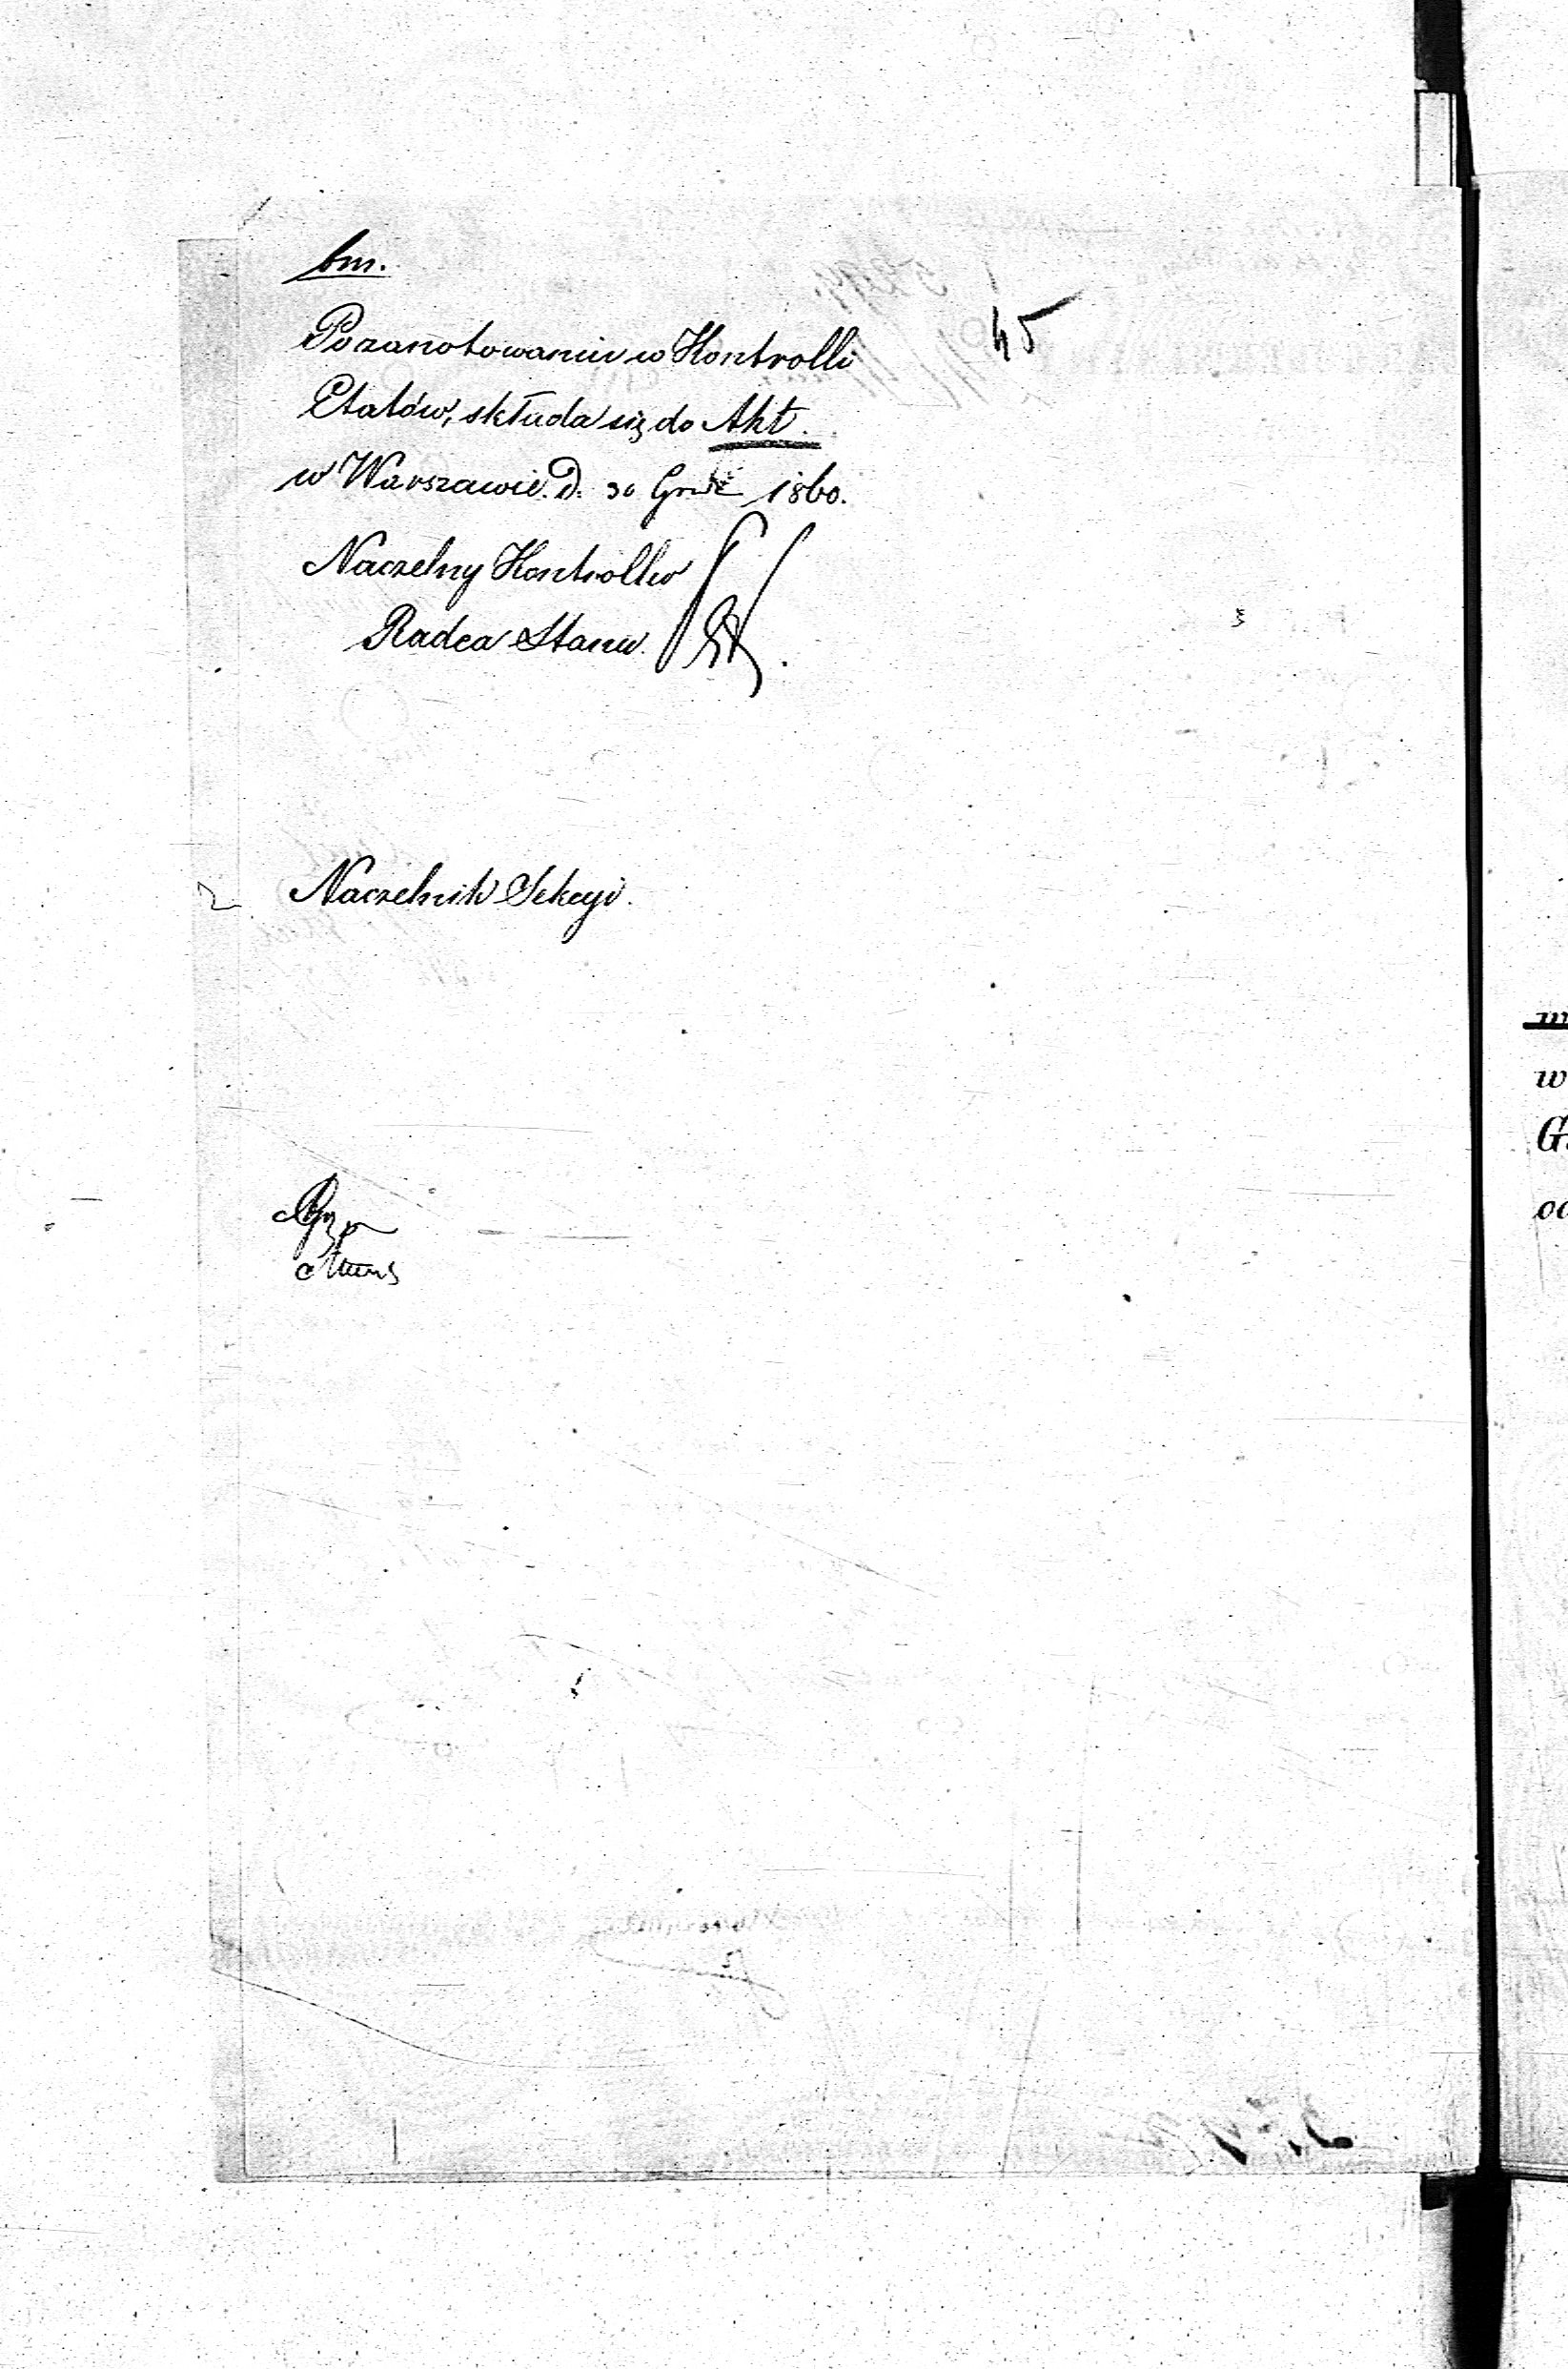 bm.
45
Po zanotowaniu w Kontrolli
Etatów, składa się do Akt.
w Warszawie. D. 30 Grud 1860.
Naczelny Kontroller
Radca Stanu.
Naczelnik Sekcyi.
w
G